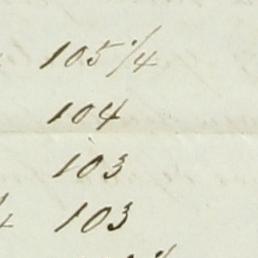 105 1/4
104
103
103